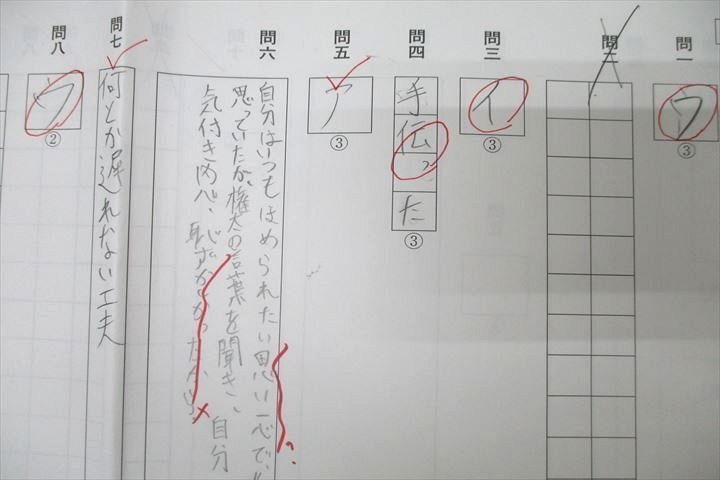 問一
ウ
③
問二
問三
イ
③
問四
手伝った
③
問五
ア
③
問六
自分はいつもほめられたい思い一心で、
思っていたが、権太の言葉を聞き、自分
気付き
問七
何とか遅れない工夫
問八
ウ
②